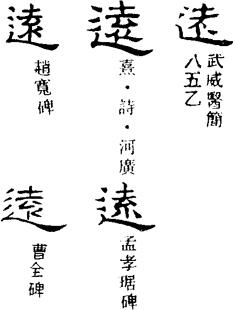 遠
武威醫簡
八五乙
遠
熹·詩·河廣
遠
孟孝琚碑
遠
趙寬碑
遠
曹全碑